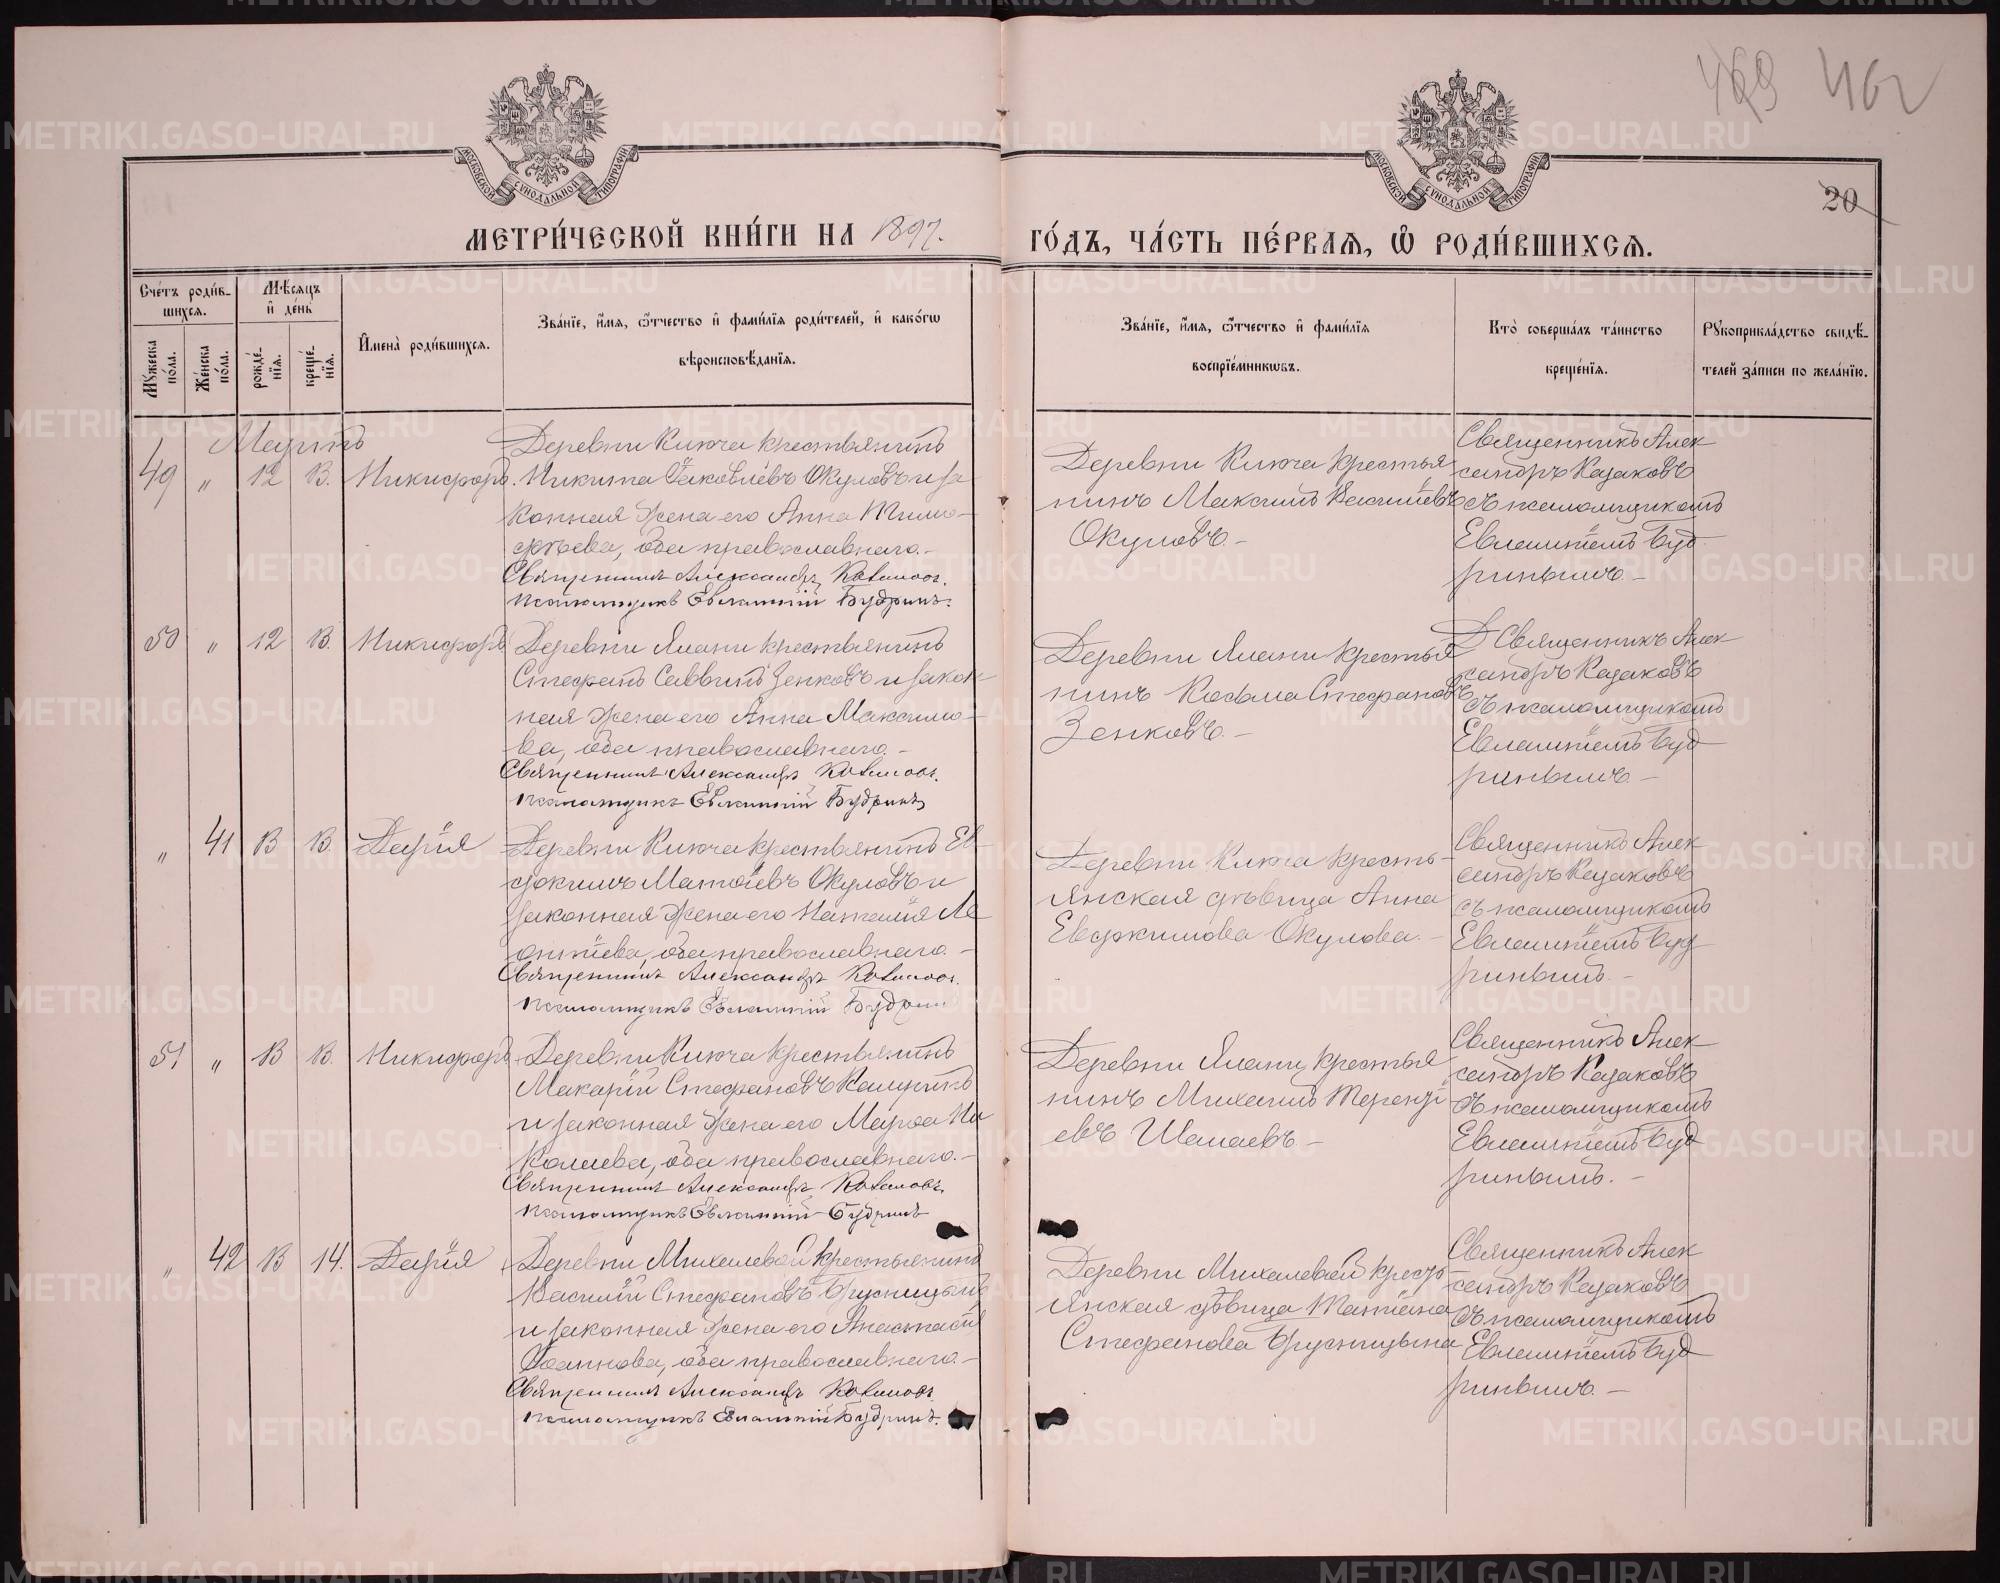 469 462
МОСКОВСКОЙ СѴНОДАЛЬНОЙ ТИПОГРАФІИ
МОСКОВСКОЙ СѴНОДАЛЬНОЙ ТИПОГРАФІИ
20
МЕТРИ́ЧЕСКОЙ КНИ́ГИ НА 1897. ГО́ДЪ, ЧА́СТЬ ПЕ́РВАѦ, Ѡ҆ РОДИ́ВШИХСѦ.
Сче́тъ роди́в-
шихсѧ.
Мꙋ́жеска по́ла.
Же́нска по́ла.
Мѣ́сѧцъ
и҆ де́нь
рожде́-
нїѧ.
креще́-
нїѧ.
И҆мена̀ роди́вшихсѧ.
Зва́нїе, и҆́мѧ, ѻ҆́тчество и҆ фами́лїѧ роди́телей, и҆ како́гѡ
вѣроисповѣ́данїѧ.
Зва́нїе, и҆́мѧ, ѻ҆́тчество и҆ фами́лїѧ
воспрїе́мникѡвъ.
Кто̀ соверша́лъ та́инство
креще́нїѧ.
Рꙋкоприкла́дство свидѣ́-
телей за́писи по жела́нїю.
Мартъ
49 " 12 13. Никифоръ.
Деревни Ключа крестьянинъ
Никита Іаковлевъ Окуловъ и за-
конная жена его Анна Тимо-
феева, оба православнаго.-
Священникъ Александръ Казаковъ.
псаломщикъ Евлампій Будринъ.
Деревни Ключа крестья
нинъ Максимъ Васильевъ
Окуловъ.-
Священникъ Алек
сандръ Казаковъ
съ псаломщикомъ
Евлампіемъ Буд
ринымъ.-
50 " 12 13. Никифоръ
Деревни Ялани крестьянинъ
Стефанъ Саввинъ Зенковъ и закон-
ная жена его Анна Максимо-
ва, оба православнаго.-
Священникъ Александръ Казаковъ.
псаломщикъ Евлампій Будринъ
Деревни Ялани крестья
нинъ Козьма Стефановъ
Зенковъ.-
Священникъ Алек
сандръ Казаковъ
съ псаломщикомъ
Евлампіемъ Буд
ринымъ-
" 41 13 13. Дарія
Деревни Ключа крестьянинъ Ев-
докимъ Матѳіевъ Окуловъ и
законная жена его Наталія Ле
онтіева, оба православнаго.-
Священникъ Александръ Казаковъ.
псаломщикъ Евлампій Будрин
Деревни Ключа кресть-
янская дѣвица Анна
Евдокимова Окулова.-
Священникъ Алек
сандръ Казаковъ
съ псаломщикомъ
Евлампіемъ Буд
ринымъ.-
51 " 13 13. Никифоръ
Деревни Ключа крестьянинъ
Макарій Стефановъ Калининъ
и законная жена его Марѳа Ни
колаева, оба православнаго.-
Священникъ Александръ Казаковъ.
псаломщикъ Евлампій Будринъ
Деревни Ялани крестья
нинъ Михаилъ Терентi
евъ Шалаевъ-
Священникъ Алек
сандръ Казаковъ
съ псаломщикомъ
Евлампіемъ Буд
ринымъ.-
" 42 13 14. Дарія
Деревни Михалевой крестьянинъ
Василій Стефановъ Брусницынъ
и законная жена его Анастасія
Іоаннова, оба православнаго-
Священникъ Александръ Казаковъ.
псаломщикъ Евлампій Будринъ.
Деревни Михалевой кресть-
янская дѣвица Татіана
Стефанова Брусницына
Священникъ Алек
сандръ Казаковъ
съ псаломщикомъ
Евлампіемъ Буд
ринымъ.-
METRIKI.GASO-URAL.RU